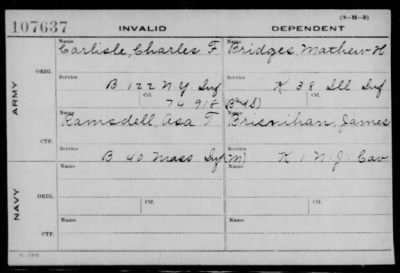 (3-H-3)
107637 INVALID DEPENDENT
ARMY
ORIG.
Name Carlisle, Charles F. Name Bridges, Mathew H
Service B 122 N.Y. Inf Service K 38 Ill Inf
Ctf. 74 918 Ctf.
CTF.
Name Ramsdell, Asa T Name Brienihan, James
B 40 Mass Inf K 1 N.J. Cav
NAVY
ORIG.
Name Name
Service Ctf. Service Ctf.
CTF.
Name Name